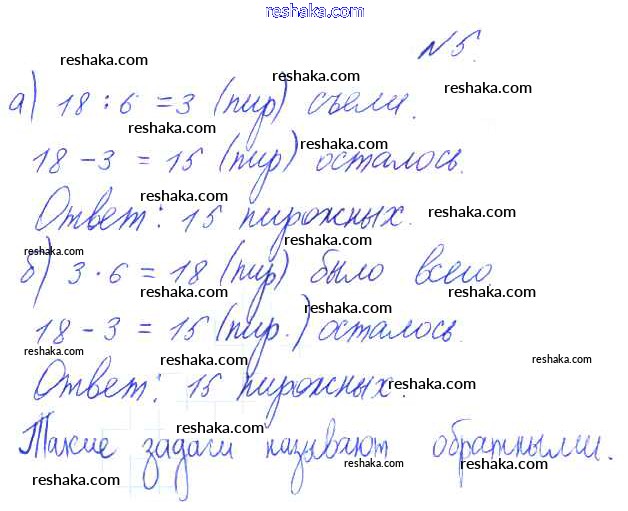 reshaka.com
№5.
reshaka.com reshaka.com
а) 18 : 6 = 3 (пир) съели.
reshaka.com reshaka.com
18 - 3 = 15 (пир) осталось.
reshaka.com reshaka.com
Ответ: 15 пирожных.
reshaka.com reshaka.com
б) 3 · 6 = 18 (пир) было всего
reshaka.com reshaka.com reshaka.com
18 - 3 = 15 (пир.) осталось.
reshaka.com reshaka.com reshaka.com
Ответ: 15 пирожных.
reshaka.com reshaka.com
Такие задачи называют обратными.
reshaka.com reshaka.com reshaka.com